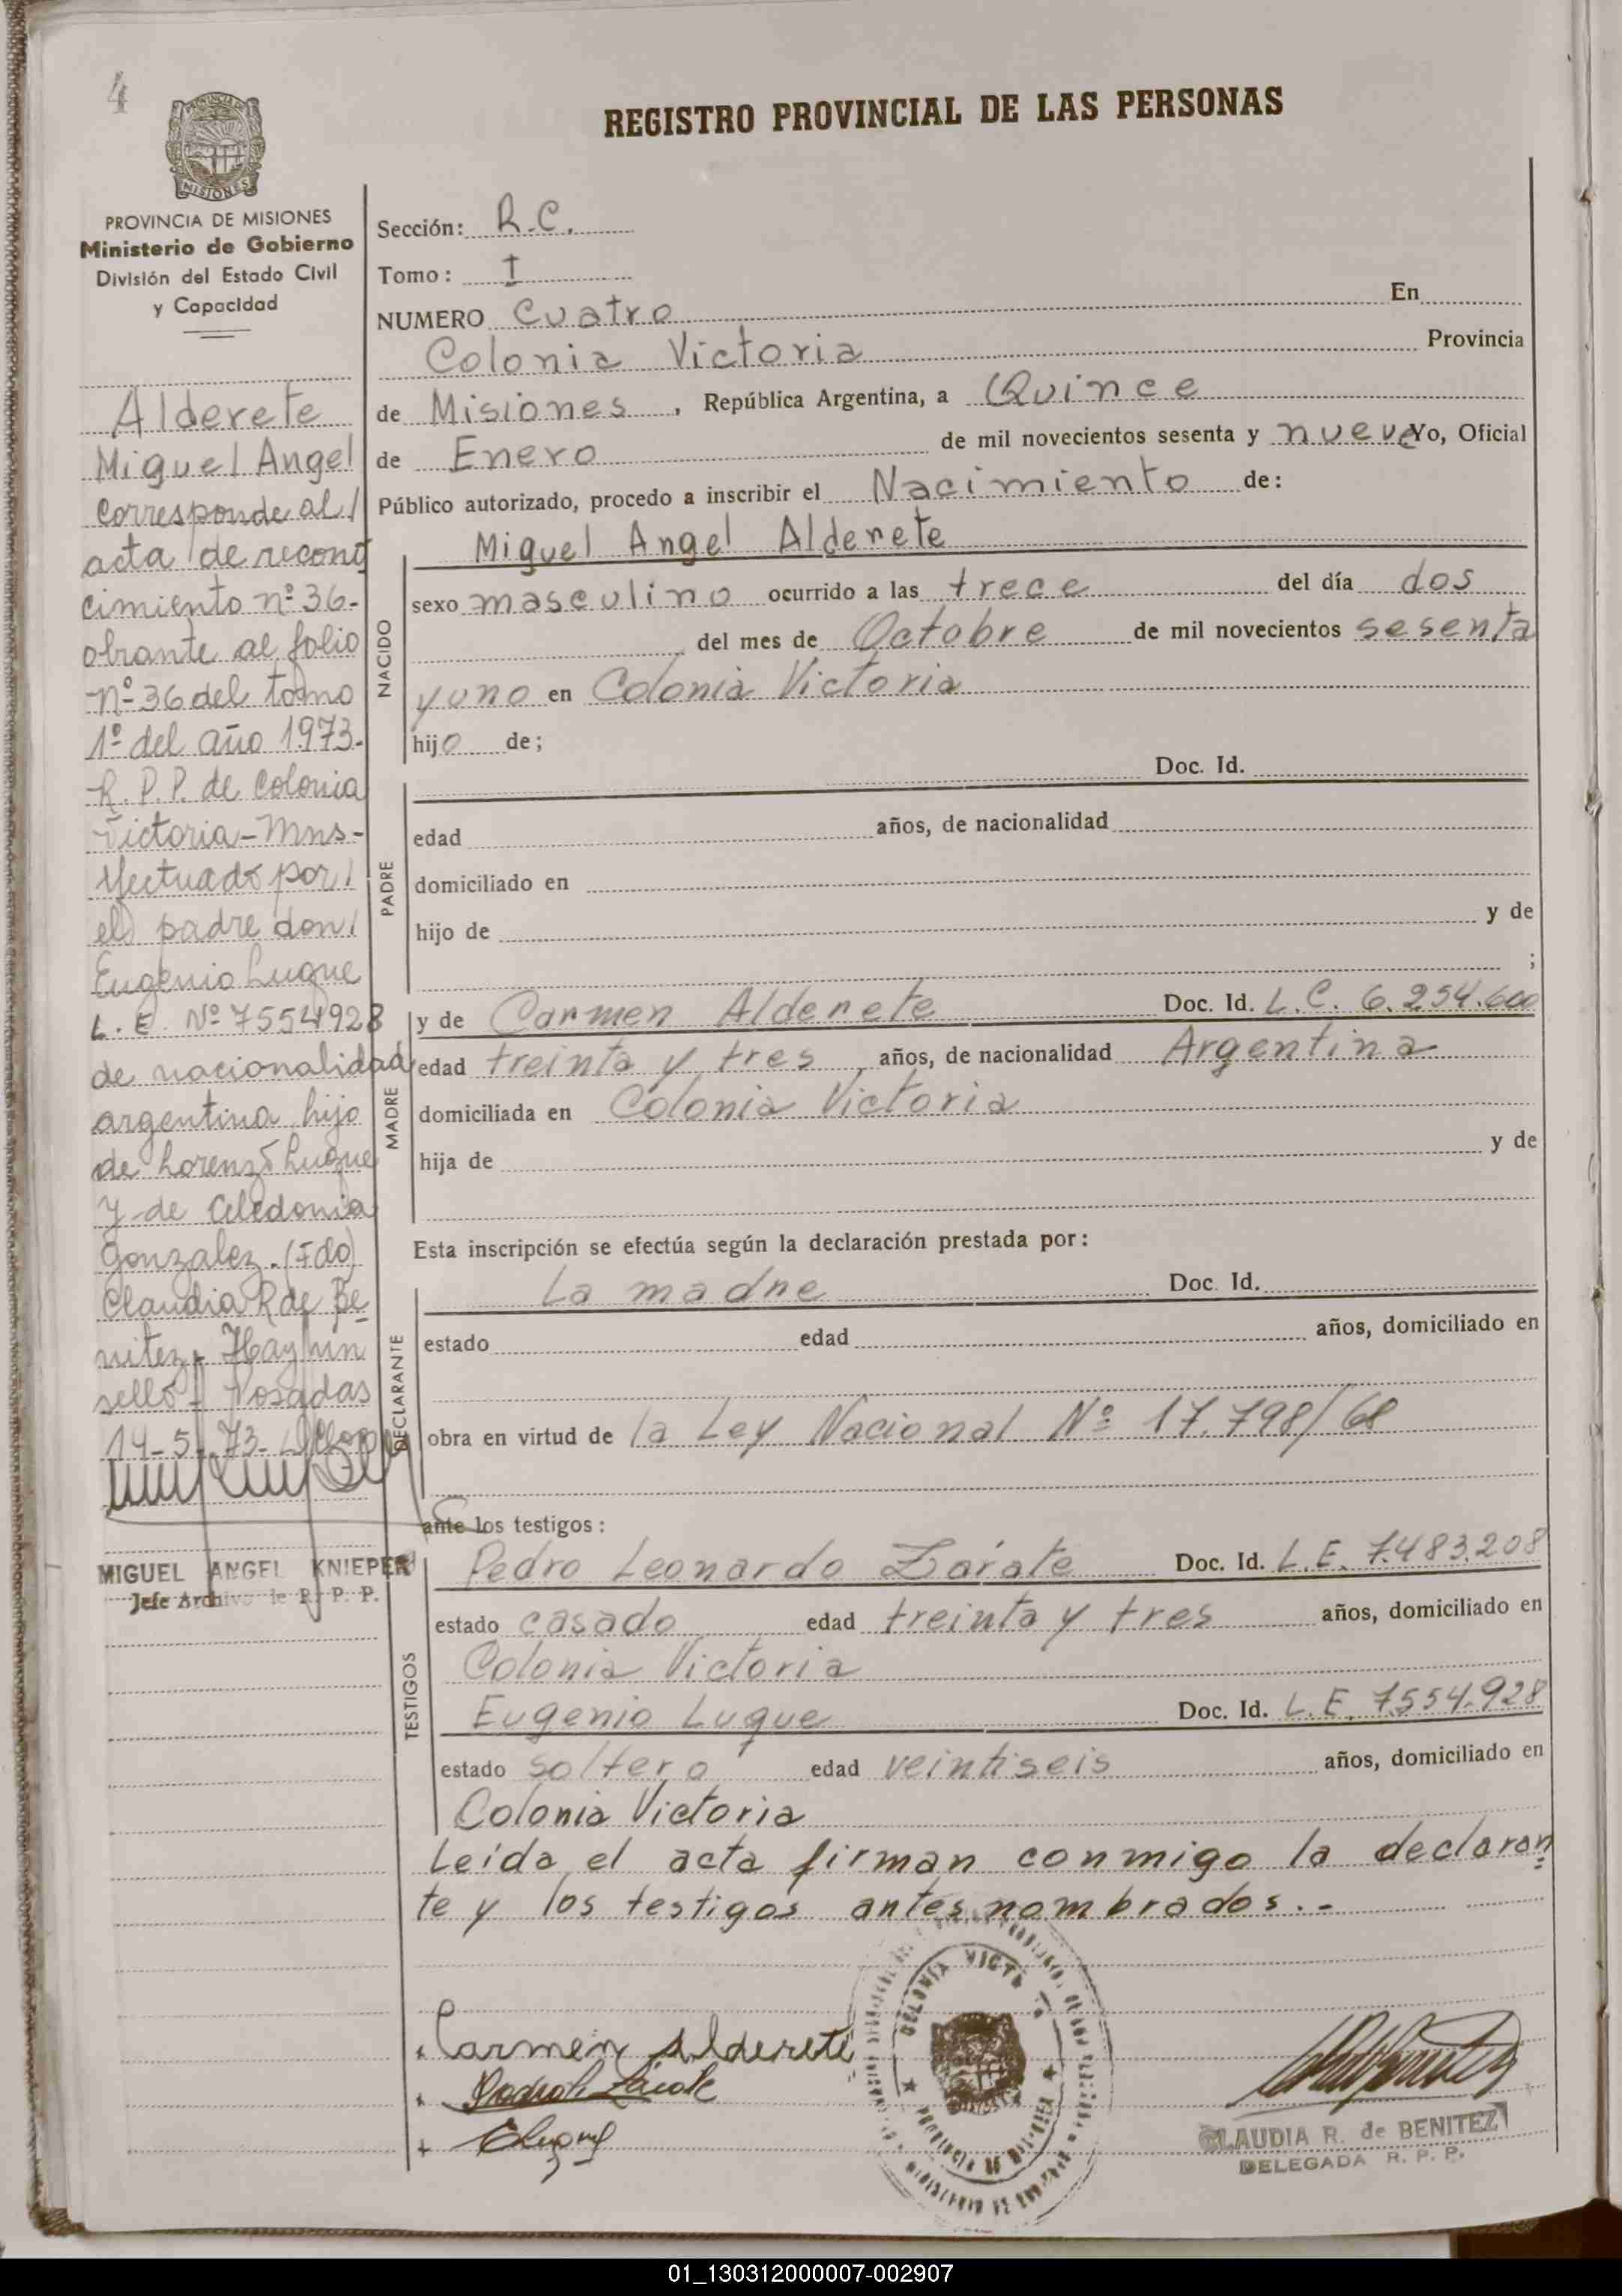 4
PROVINCIA DE MISIONES
MISIONES
REGISTRO PROVINCIAL DE LAS PERSONAS
PROVINCIA DE MISIONES
Ministerio de Gobierno
División del Estado Civil
y Capacidad
Alderete
Miguel Angel
Corresponde al /
acta de recono
cimiento nº 36-
obrante al folio
nº 36 del tomo
1º del año 1973.
R. P. P. de Colonia
Victoria - Mns-
efectuado por /
el padre don /
Eugenio Luque
L. E. Nº 7554928
de nacionalidad
argentina hijo
de Lorenzo Luque
y de Celedonia
Gonzalez. (Fdo)
Claudia R de Be-
nitez - Hay un
sello - Posadas
14-5-73-
MIGUEL ANGEL KNIEPER
Jefe Archivo de R. P. P.
Sección: R.C.
Tomo: I
NUMERO Cuatro En
Colonia Victoria Provincia
de Misiones, República Argentina, a Quince
de Enero de mil novecientos sesenta y nueve Yo, Oficial
Público autorizado, procedo a inscribir el Nacimiento de:
NACIDO
Miguel Angel Alderete
sexo masculino ocurrido a las trece del día dos
del mes de Octobre de mil novecientos sesenta
y uno en Colonia Victoria
hijo de;
PADRE
Doc. Id.
edad años, de nacionalidad
domiciliado en
hijo de y de
;
MADRE
y de Carmen Alderete Doc. Id. L.C. 6.254.600
edad treinta y tres años, de nacionalidad Argentina
domiciliada en Colonia Victoria
hija de y de
Esta inscripción se efectúa según la declaración prestada por:
DECLARANTE
La madre Doc. Id.
estado edad años, domiciliado en
obra en virtud de la Ley Nacional Nº 17.798/68
ante los testigos:
TESTIGOS
Pedro Leonardo Zárate Doc. Id. L.E. 7.483.208
estado casado edad treinta y tres años, domiciliado en
Colonia Victoria
Eugenio Luque Doc. Id. L.E. 7.554.928
estado soltero edad veintiseis años, domiciliado en
Colonia Victoria
Leída el acta firman conmigo la declaran
te y los testigos antes nombrados.-
Carmen Alderete
COLONIA VICTORIA
PROVINCIA DE MISIONES
CLAUDIA R. de BENITEZ
DELEGADA R. P. P.
01_130312000007-002907